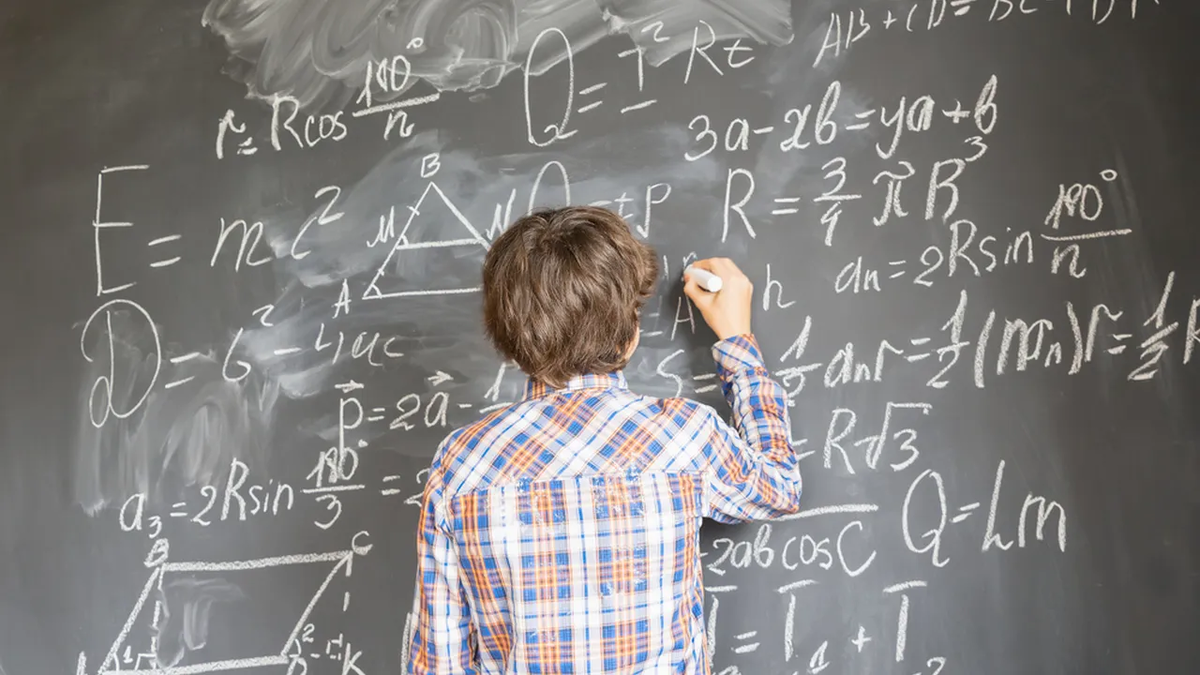 AB + CD = BC +
Q = I² Rt
r = Rcos 180°/n
3a - xb = ya + b
B
E = mc²
M N
Q = tP
R = 3/4 πR³
aₙ = 2Rsin 180°/n
A
h
D = б² - 4ac
S = 1/2 aₙr = 1/2 (Mₙ)r = 1/2
p⃗ = 2a⃗ - 1
= R√3
a₃ = 2Rsin 180°/3 = 2
Q = Lm
-2ab cosC
B C
1 2 K
= 1 + 1